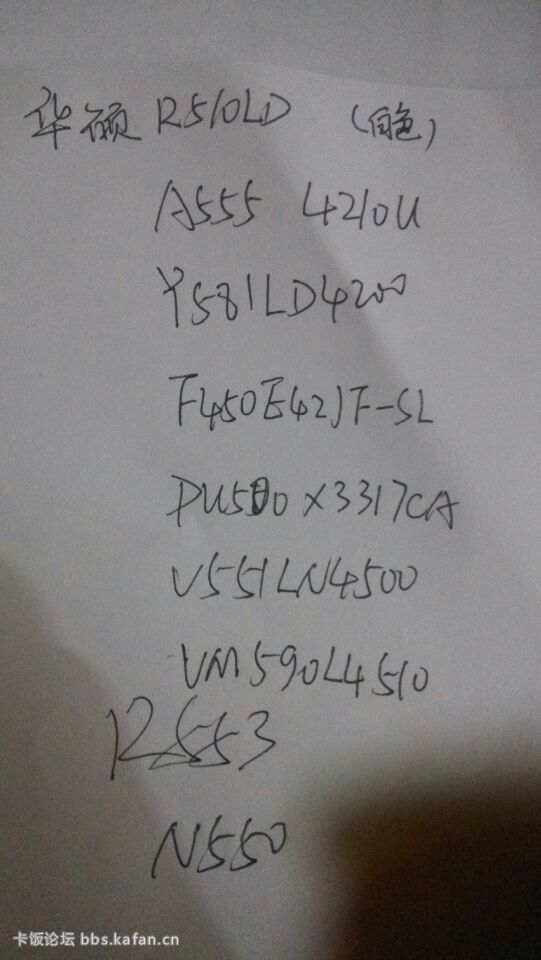 华硕 R510LD (白色)
A555 4210U
Y581LD4200
F450E42JF-SL
PU500X3317CA
V551LN4500
VM590L4510
R553
N550
卡饭论坛 bbs.kafan.cn